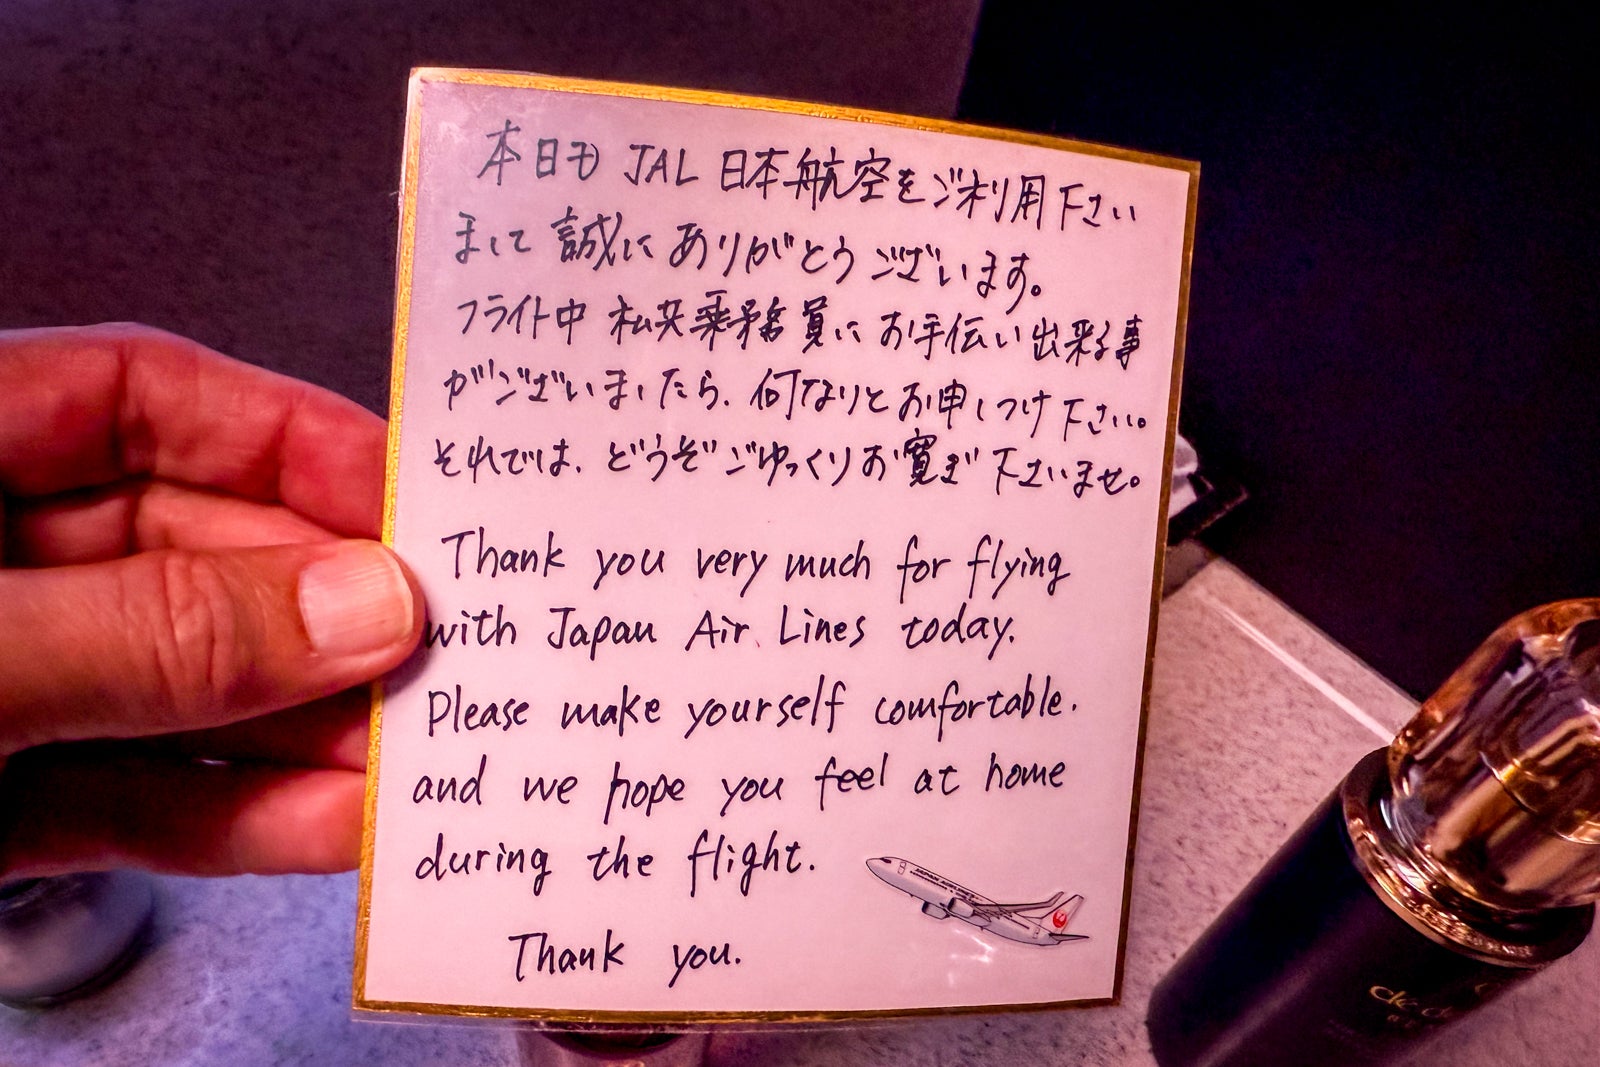 本日も JAL 日本航空をご利用下さい
まして 誠に ありがとう ございます。
フライト中 私共乗務員に お手伝い出来る事
がございましたら、何なりと お申しつけ下さい。
それでは、どうぞ ごゆっくり お寛ぎ 下さいませ。
Thank you very much for flying
with Japan Air Lines today.
Please make yourself comfortable.
and we hope you feel at home
during the flight.
JAPAN AIRLINES
Thank you.